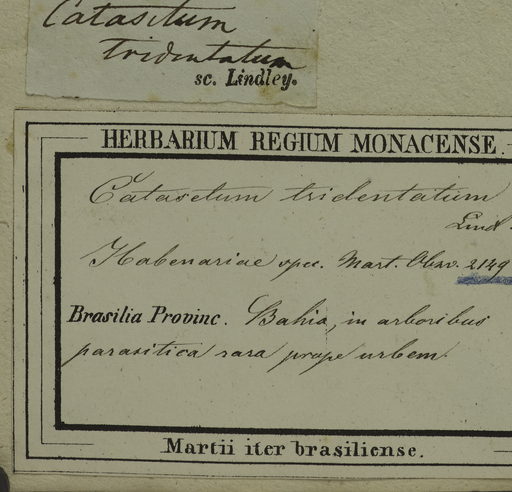 Catasetum
tridentatum
sc. Lindley.
HERBARIUM REGIUM MONACENSE.
Catasetum tridentatum
Lind.
Habenariae spec. Mart. Obsv. 2149
Brasilia Provinc. Bahia, in arboribus
parasitica rara prope urbem.
Martii iter brasiliense.